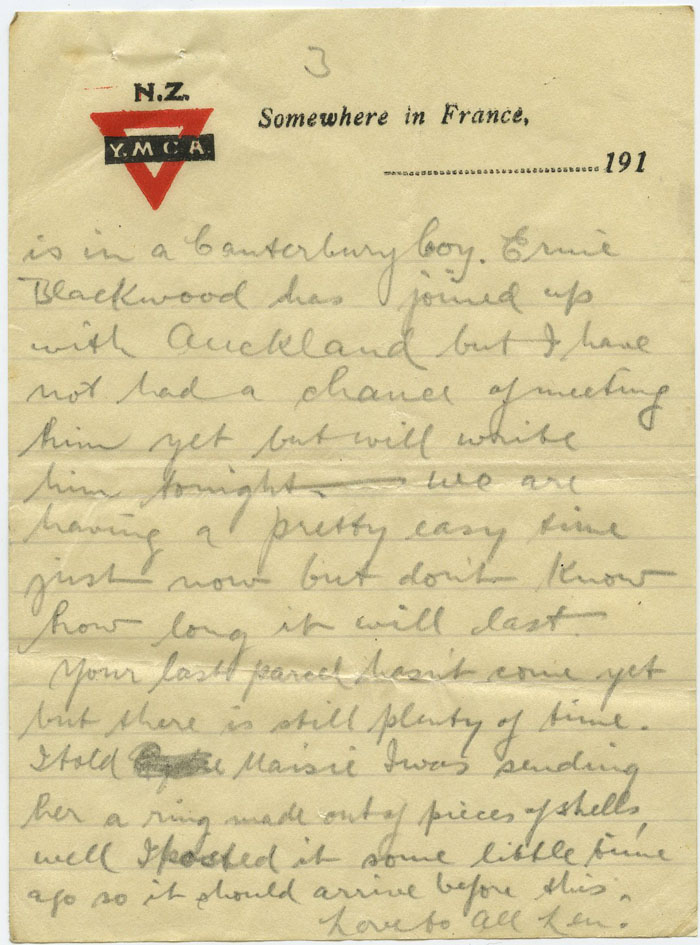 3
N.Z.
Y.M.C.A.
Somewhere in France,
191
is in a Canterbury Coy. Ernie
Blackwood has joined up
with Auckland but I have
not had a chance of meeting
him yet but will write
him tonight. — we are
having a pretty easy time
just now but don't know
how long it will last.
Your last parcel hasn't come yet
but there is still plenty of time.
I told Maisie I was sending
her a ring made out of pieces of shells,
well I posted it some little time
ago so it should arrive before this.
Love to All Len.